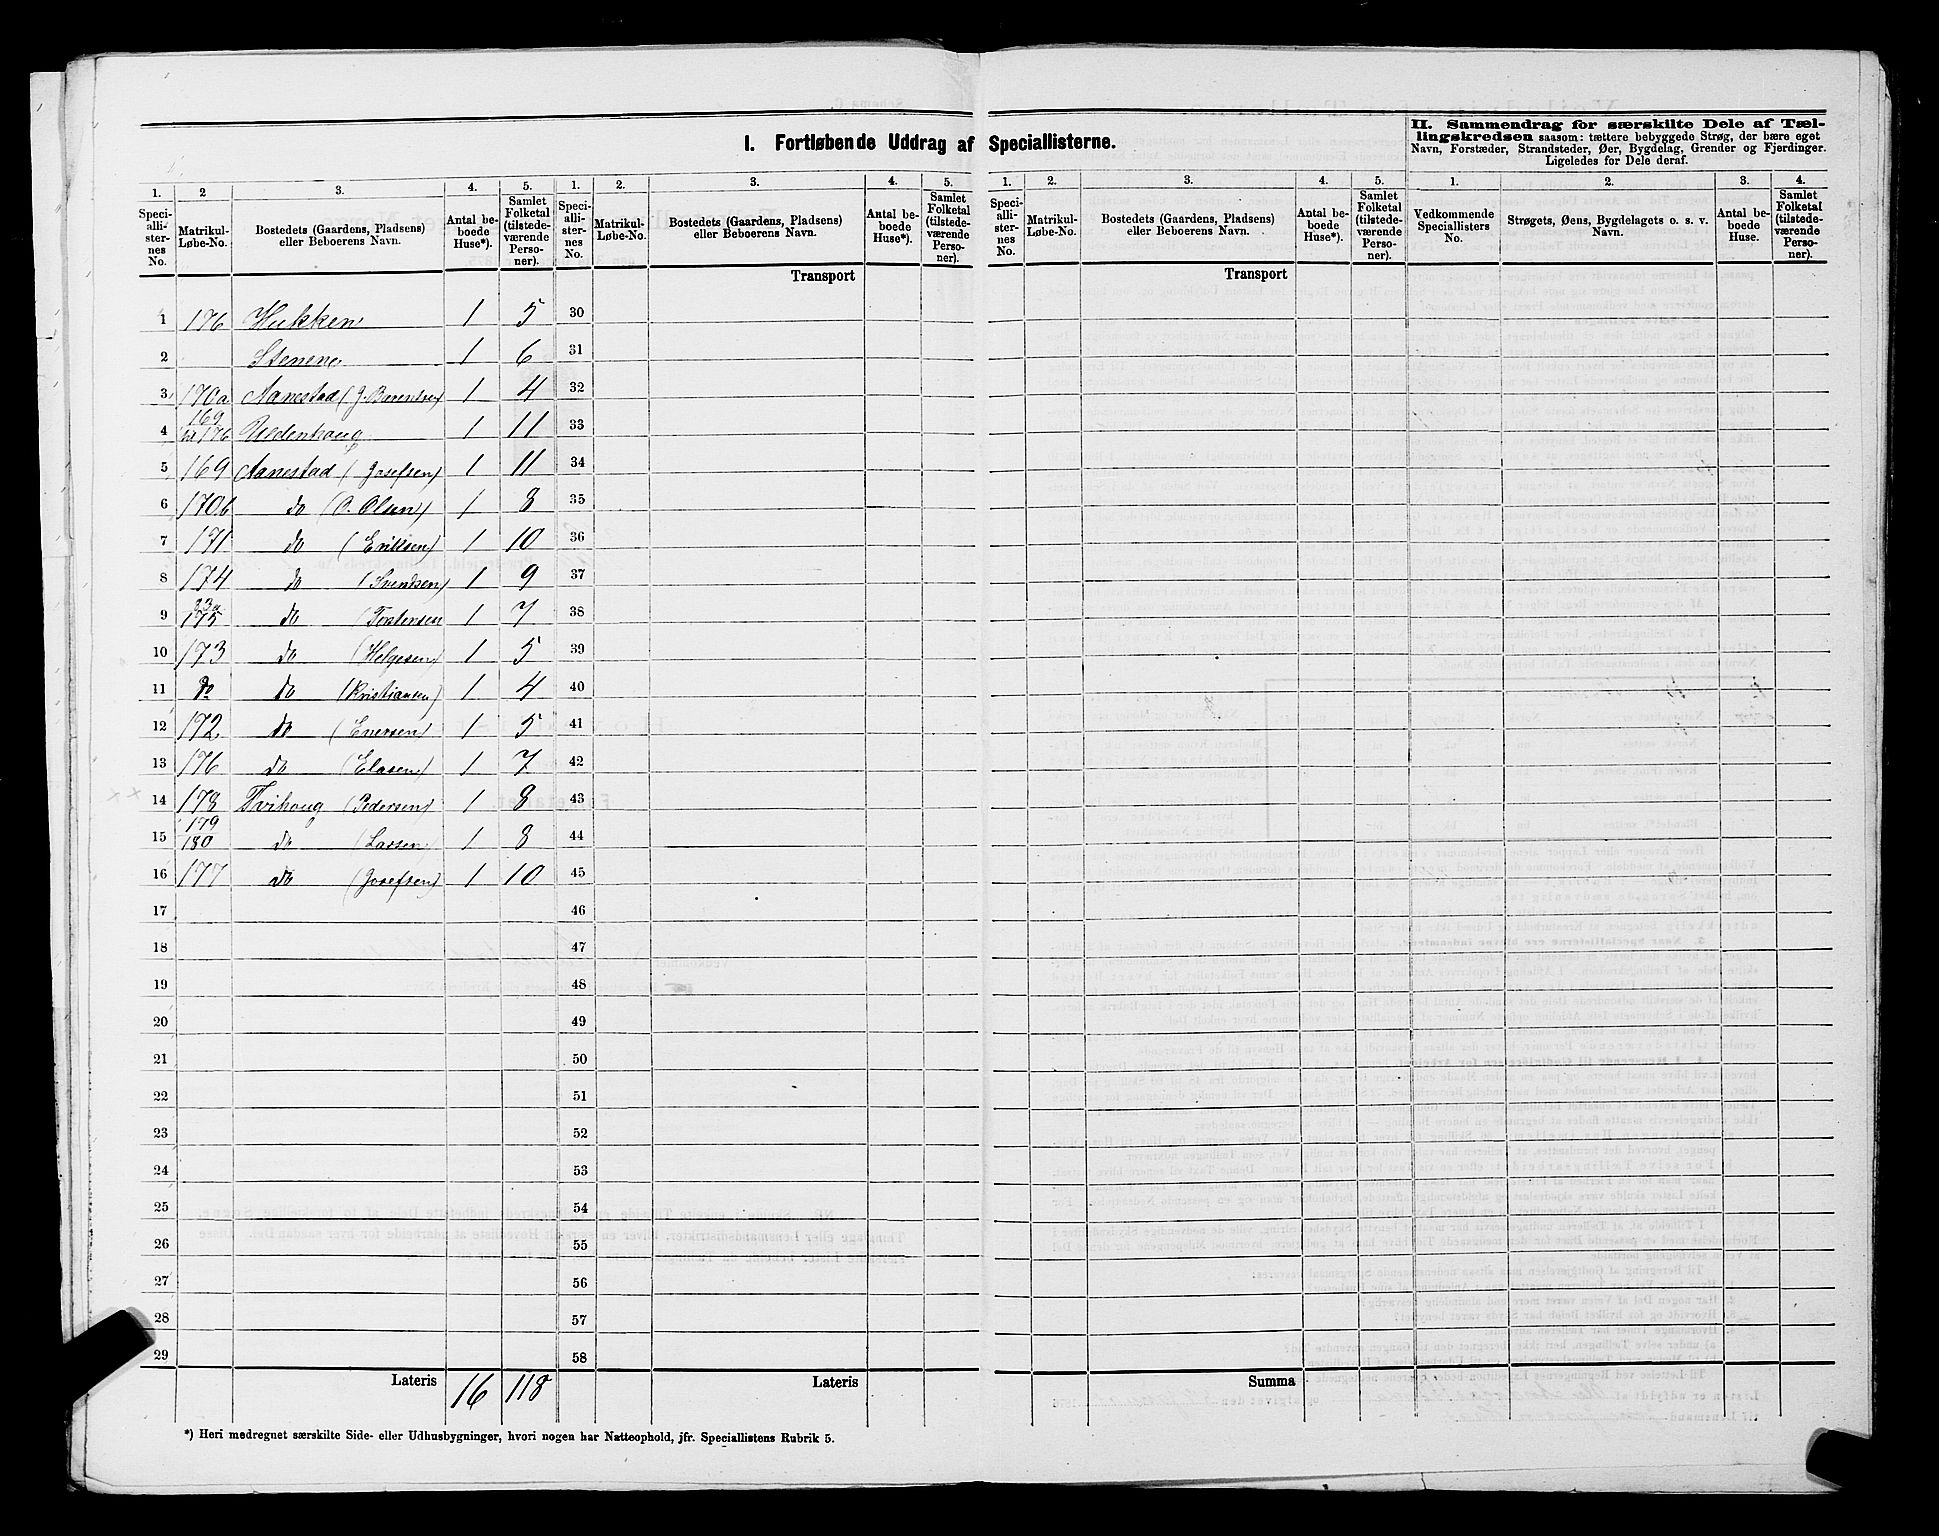 I. Fortløbende Uddrag af Speciallisterne.
II. Sammendrag for særskilte Dele af Tæl-
lingskredsen saasom: tættere bebyggede Strøg, der bære eget
Navn, Forstæder, Strandsteder, Øer, Bygdelag, Grender og Fjerdinger.
Ligeledes for Dele deraf.
1. 2 3. 4. 5. 1. 2. 3. 4. 5. 1. 2. 3. 4. 5. 1. 2. 3. 4.
Speci-alli-ster-nes No. Matrikul-Løbe-No. Bostedets (Gaardens, Pladsens) eller Beboerens Navn. Antal be-boede Huse*). Samlet Folketal (tilstede-værende Perso-ner).
Speci-alli-ster-nes No. Matrikul-Løbe-No. Bostedets (Gaardens, Pladsens) eller Beboerens Navn. Antal be-boede Huse*). Samlet Folketal (tilstede-værende Perso-ner).
Speci-alli-ster-nes No. Matrikul-Løbe-No. Bostedets (Gaardens, Pladsens) eller Beboerens Navn. Antal be-boede Huse*). Samlet Folketal (tilstede-værende Perso-ner).
Vedkommende Speciallisters No. Strøgets, Øens, Bygdelagets o. s. v. Navn. Antal be-boede Huse. Samlet Folketal (tilstede-værende Perso-ner).
Transport Transport
1 176 Hukken 1 5 30
2 Stenene 1 6 31
3 170a Aanestad (J. Barentsen) 1 4 32
4 169 176 Uldenhaug 1 11 33
5 169 Aanestad (Josefsen) 1 11 34
6 170b do (O. Olsen) 1 8 35
7 171 do (Eriksen) 1 10 36
8 174 do (Svendsen) 1 9 37
9 175 do (Torstensen 1 7 38
10 173 do (Helgesen) 1 5 39
11 do do (Kristiansen) 1 4 40
12 172 do (Evensen) 1 5 41
13 176 do (Elasen) 1 7 42
14 178 Tvihaug (Pedersen) 1 8 43
15 179 180 do (Larsen) 1 8 44
16 177 do (Josefsen) 1 10 45
17 46
18 47
19 48
20 49
21 50
22 51
23 52
24 53
25 54
26 55
27 56
28 57
29 58
Lateris 16 118 Lateris Summa
*) Heri medregnet særskilte Side- eller Udhusbygninger, hvori nogen har Natteophold, jfr. Speciallistens Rubrik 5.